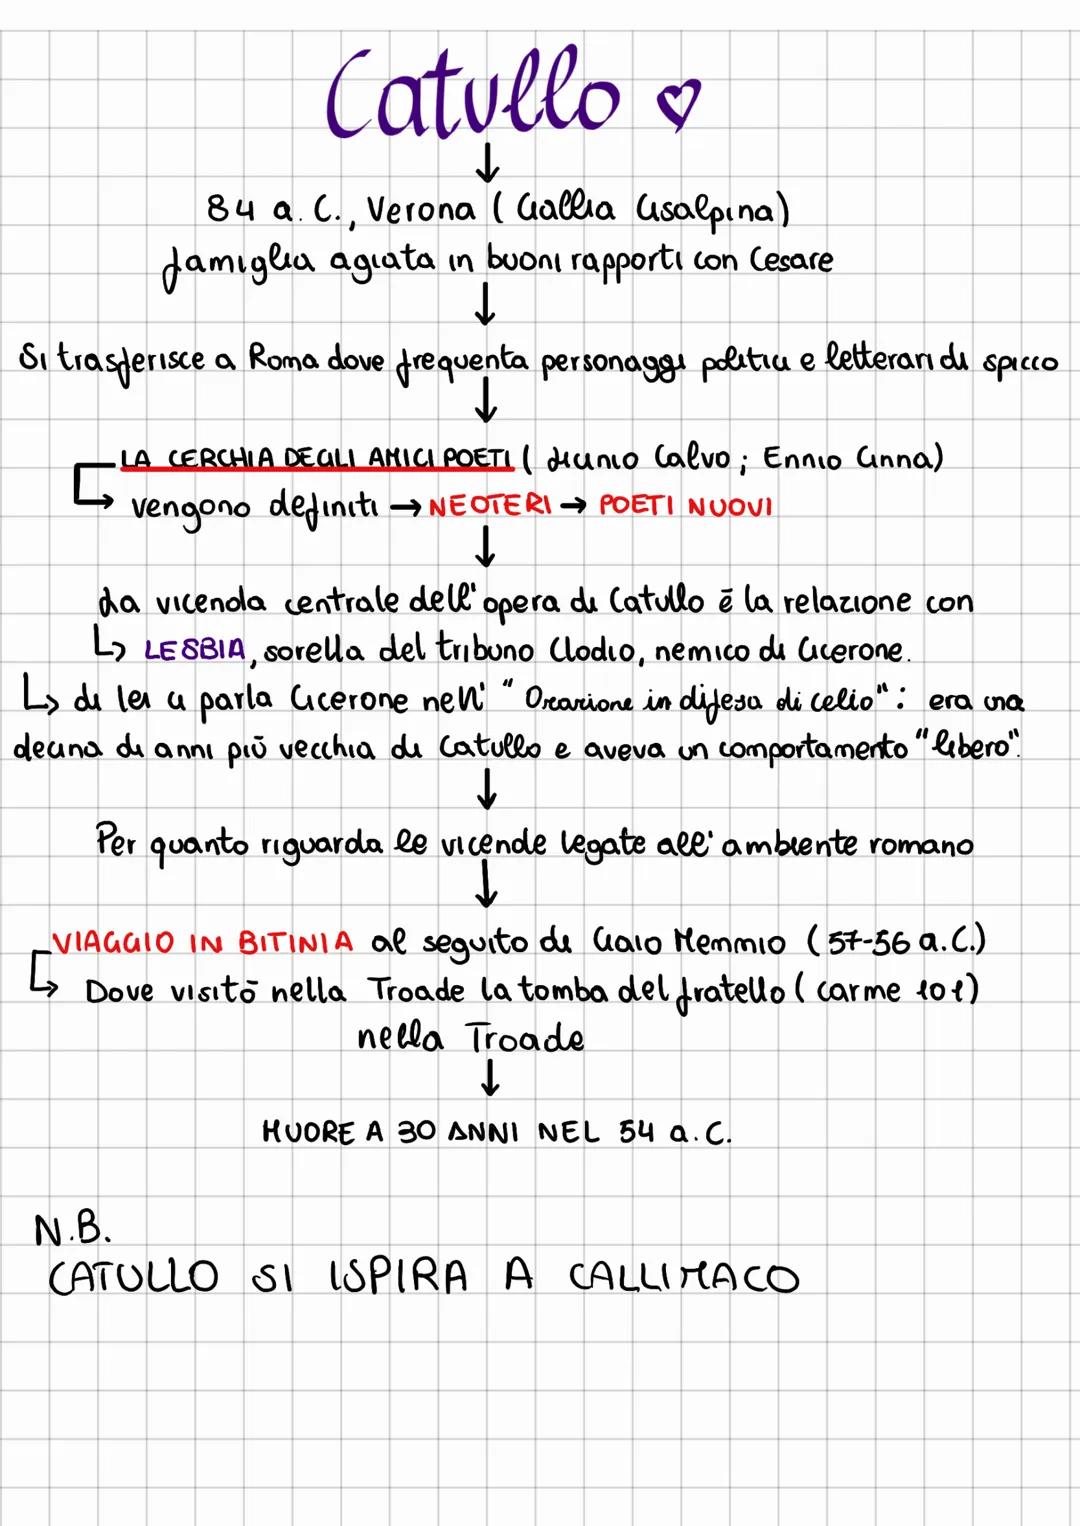 Catullo ♡
↓
84 a.C., Verona (Gallia Cisalpina)
famiglia agiata in buoni rapporti con Cesare
↓
Si trasferisce a Roma dove frequenta personaggi politici e letterari di spicco
↓
LA CERCHIA DEGLI AMICI POETI (Licinio Calvo; Ennio Cinna)
↳ vengono definiti → NEOTERI → POETI NUOVI
↓
La vicenda centrale dell'opera di Catullo è la relazione con
↳ LESBIA, sorella del tribuno Clodio, nemico di Cicerone.
↳ di lei ci parla Cicerone nell' "Orazione in difesa di celio": era una
decina di anni più vecchia di Catullo e aveva un comportamento "libero".
↓
Per quanto riguarda le vicende legate all'ambiente romano
↓
VIAGGIO IN BITINIA al seguito di Gaio Memmio (57-56 a.C.)
↳ Dove visitò nella Troade la tomba del fratello (carme 101)
nella Troade
↓
MUORE A 30 ANNI NEL 54 a.C.
N.B.
CATULLO SI ISPIRA A CALLIMACO